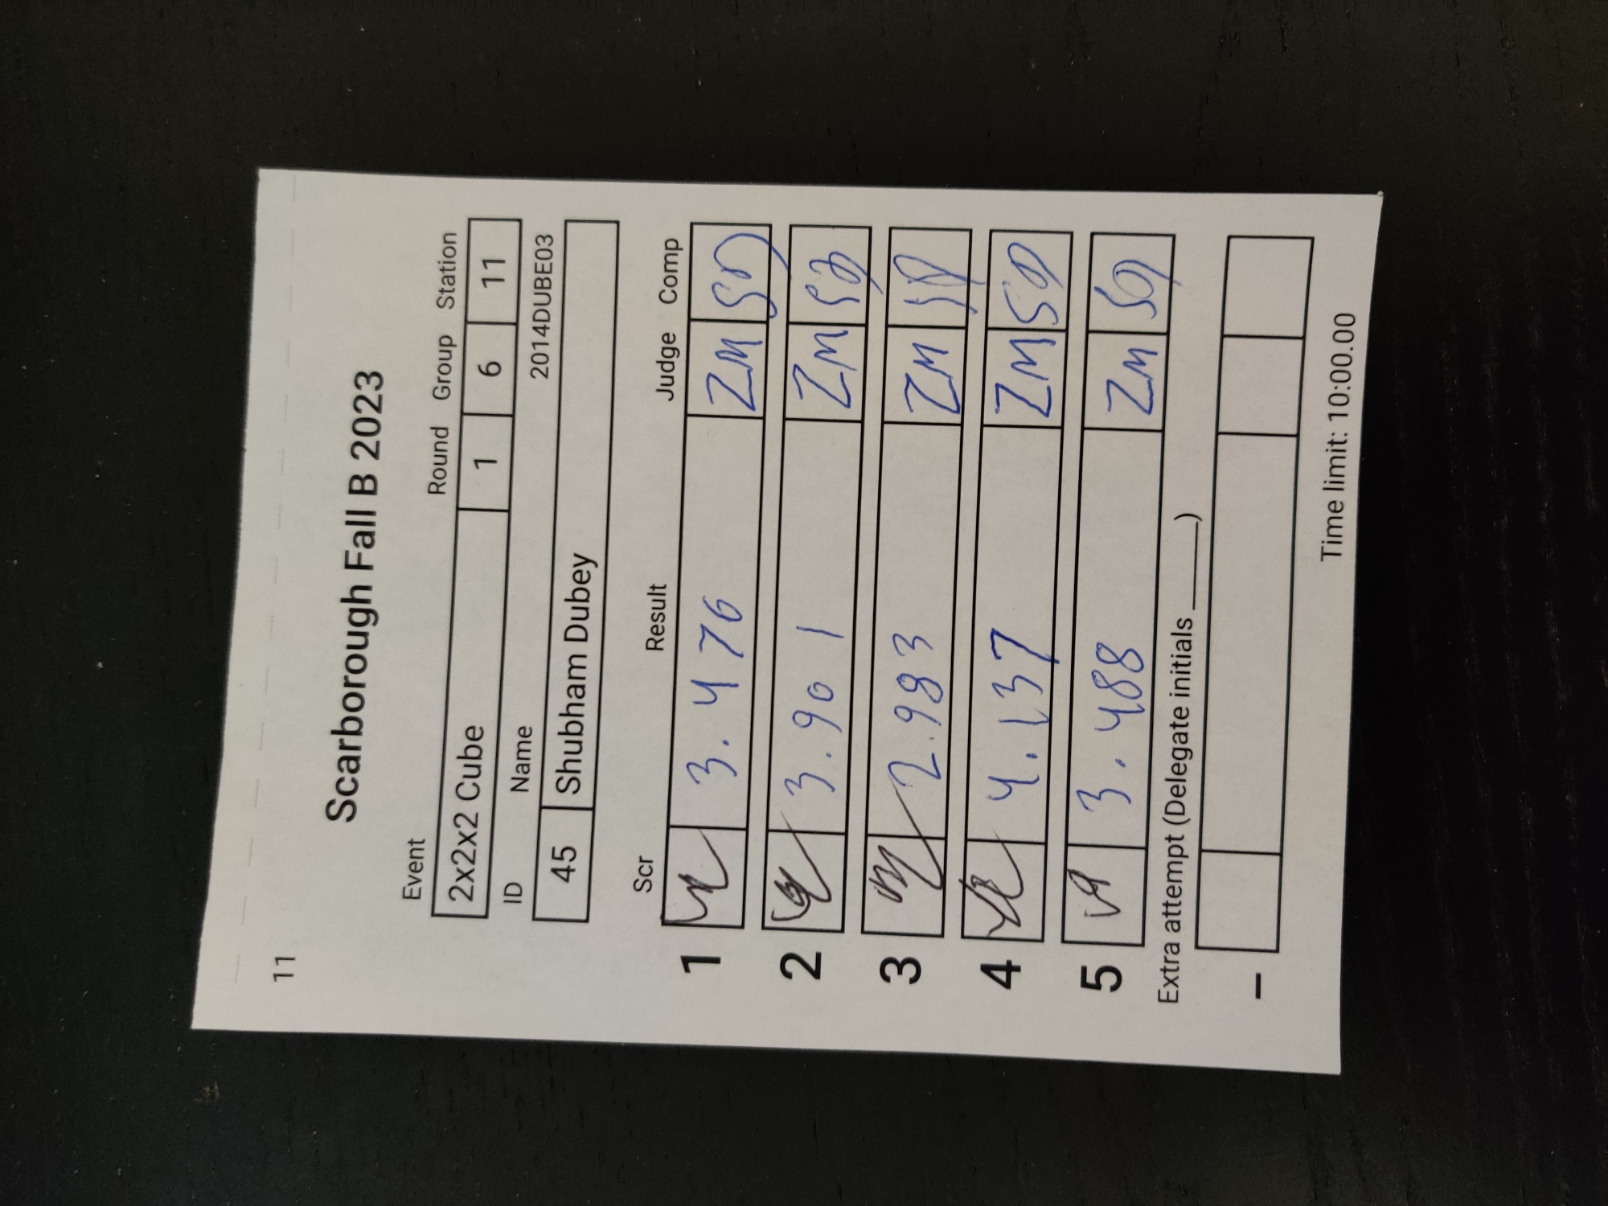 11
Scarborough Fall B 2023
Event Round Group Station
2x2x2 Cube 1 6 11
ID Name 2014DUBE03
45 Shubham Dubey
Scr Result Judge Comp
1 3.476 ZM SD
2 3.901 ZM SD
3 2.983 ZM SD
4 4.137 ZM SD
5 3.488 ZM SD
Extra attempt (Delegate initials ______)
–
Time limit: 10:00.00